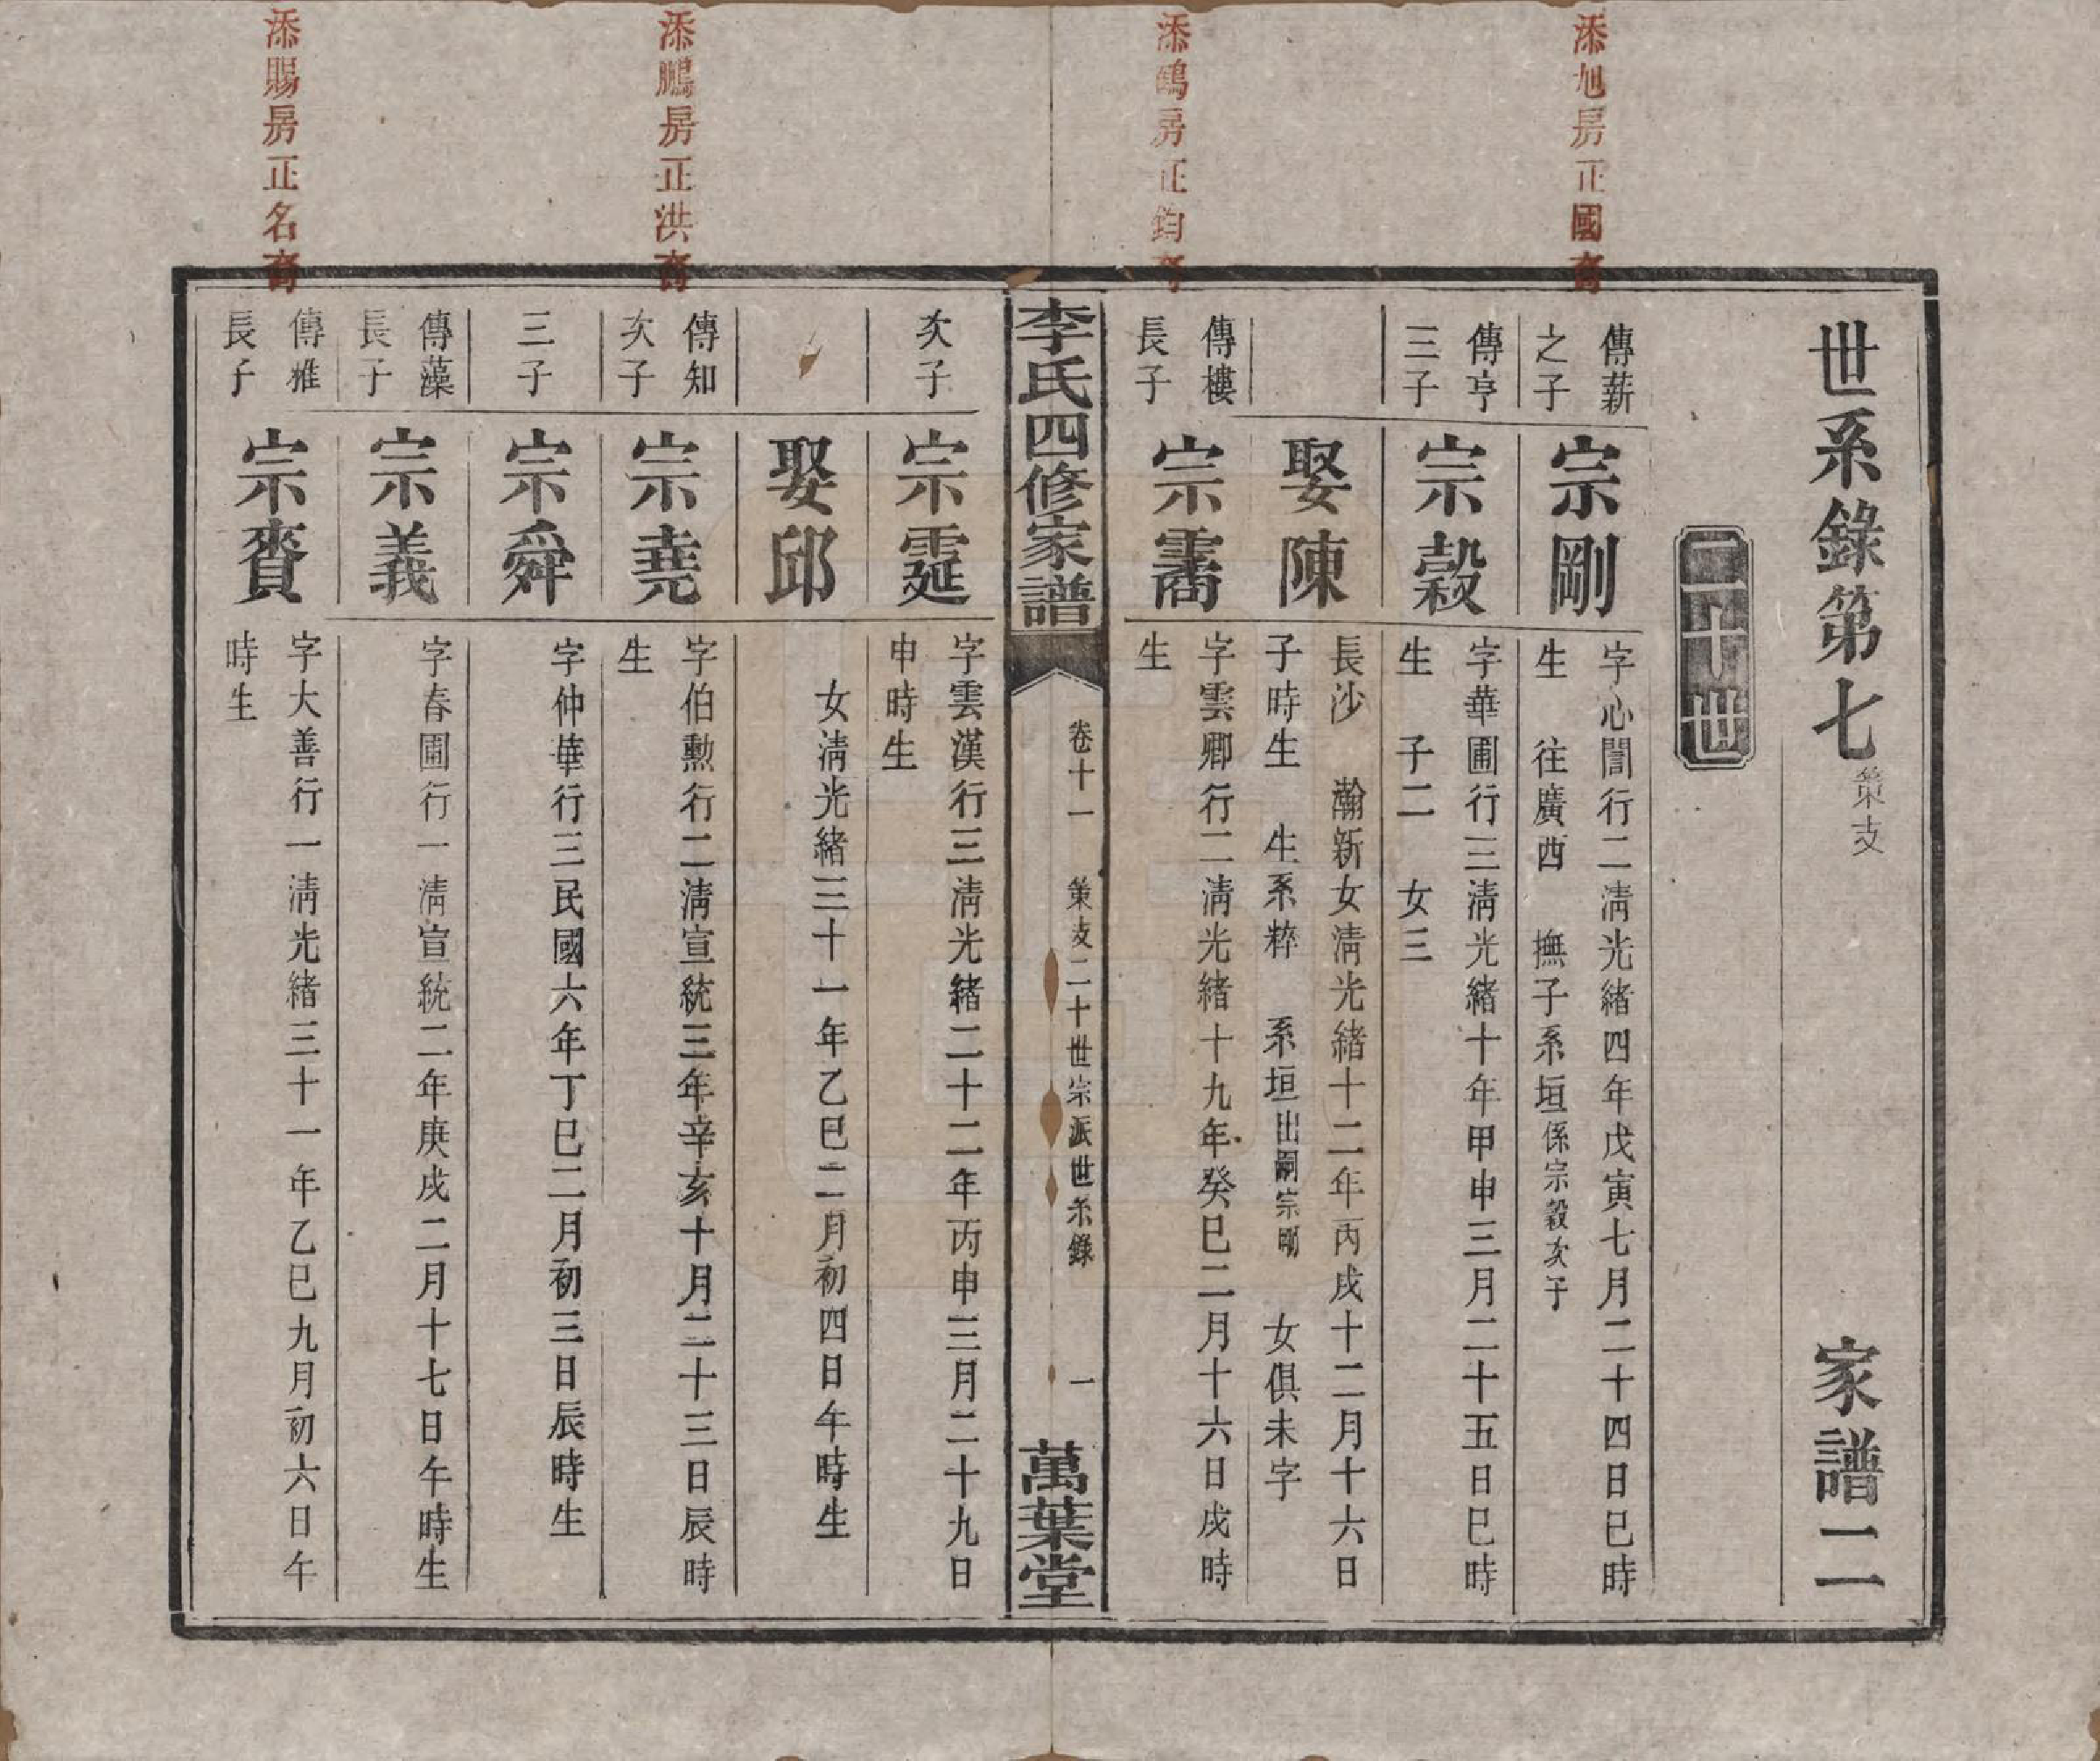 世系錄第七 策支 家譜二
二十世
添旭房正國裔
傳薪之子
宗剛
字心誾行二淸光緒四年戊寅七月二十四日巳時
生 往廣西 撫子系垣係宗穀次子
傳亨三子
宗穀
字華圃行三淸光緒十年甲申三月二十五日巳時
生 子二 女三
娶陳
長沙 瀚新女淸光緒十二年丙戌十二月十六日
子時生 生系粹 系垣出嗣宗剛 女俱未字
添鷗房正鈞裔
傳樓長子
宗霱
字雲卿行二淸光緒十九年癸巳二月十六日戌時
生
李氏四修家譜 卷十一 策支二十世宗派世系錄 一 萬葉堂
次子
宗霆
字雲漢行三淸光緒二十二年丙申三月二十九日
申時生
娶邱
女淸光緒三十一年乙巳二月初四日午時生
添鵬房正洪裔
傳知次子
宗堯
字伯勲行二淸宣統三年辛亥十月二十三日辰時
生
三子
宗舜
字仲華行三民國六年丁巳二月初三日辰時生
傳藻長子
宗義
字春圃行一淸宣統二年庚戌二月十七日午時生
添賜房正名裔
傳雅長子
宗賚
字大善行一淸光緒三十一年乙巳九月初六日午
時生